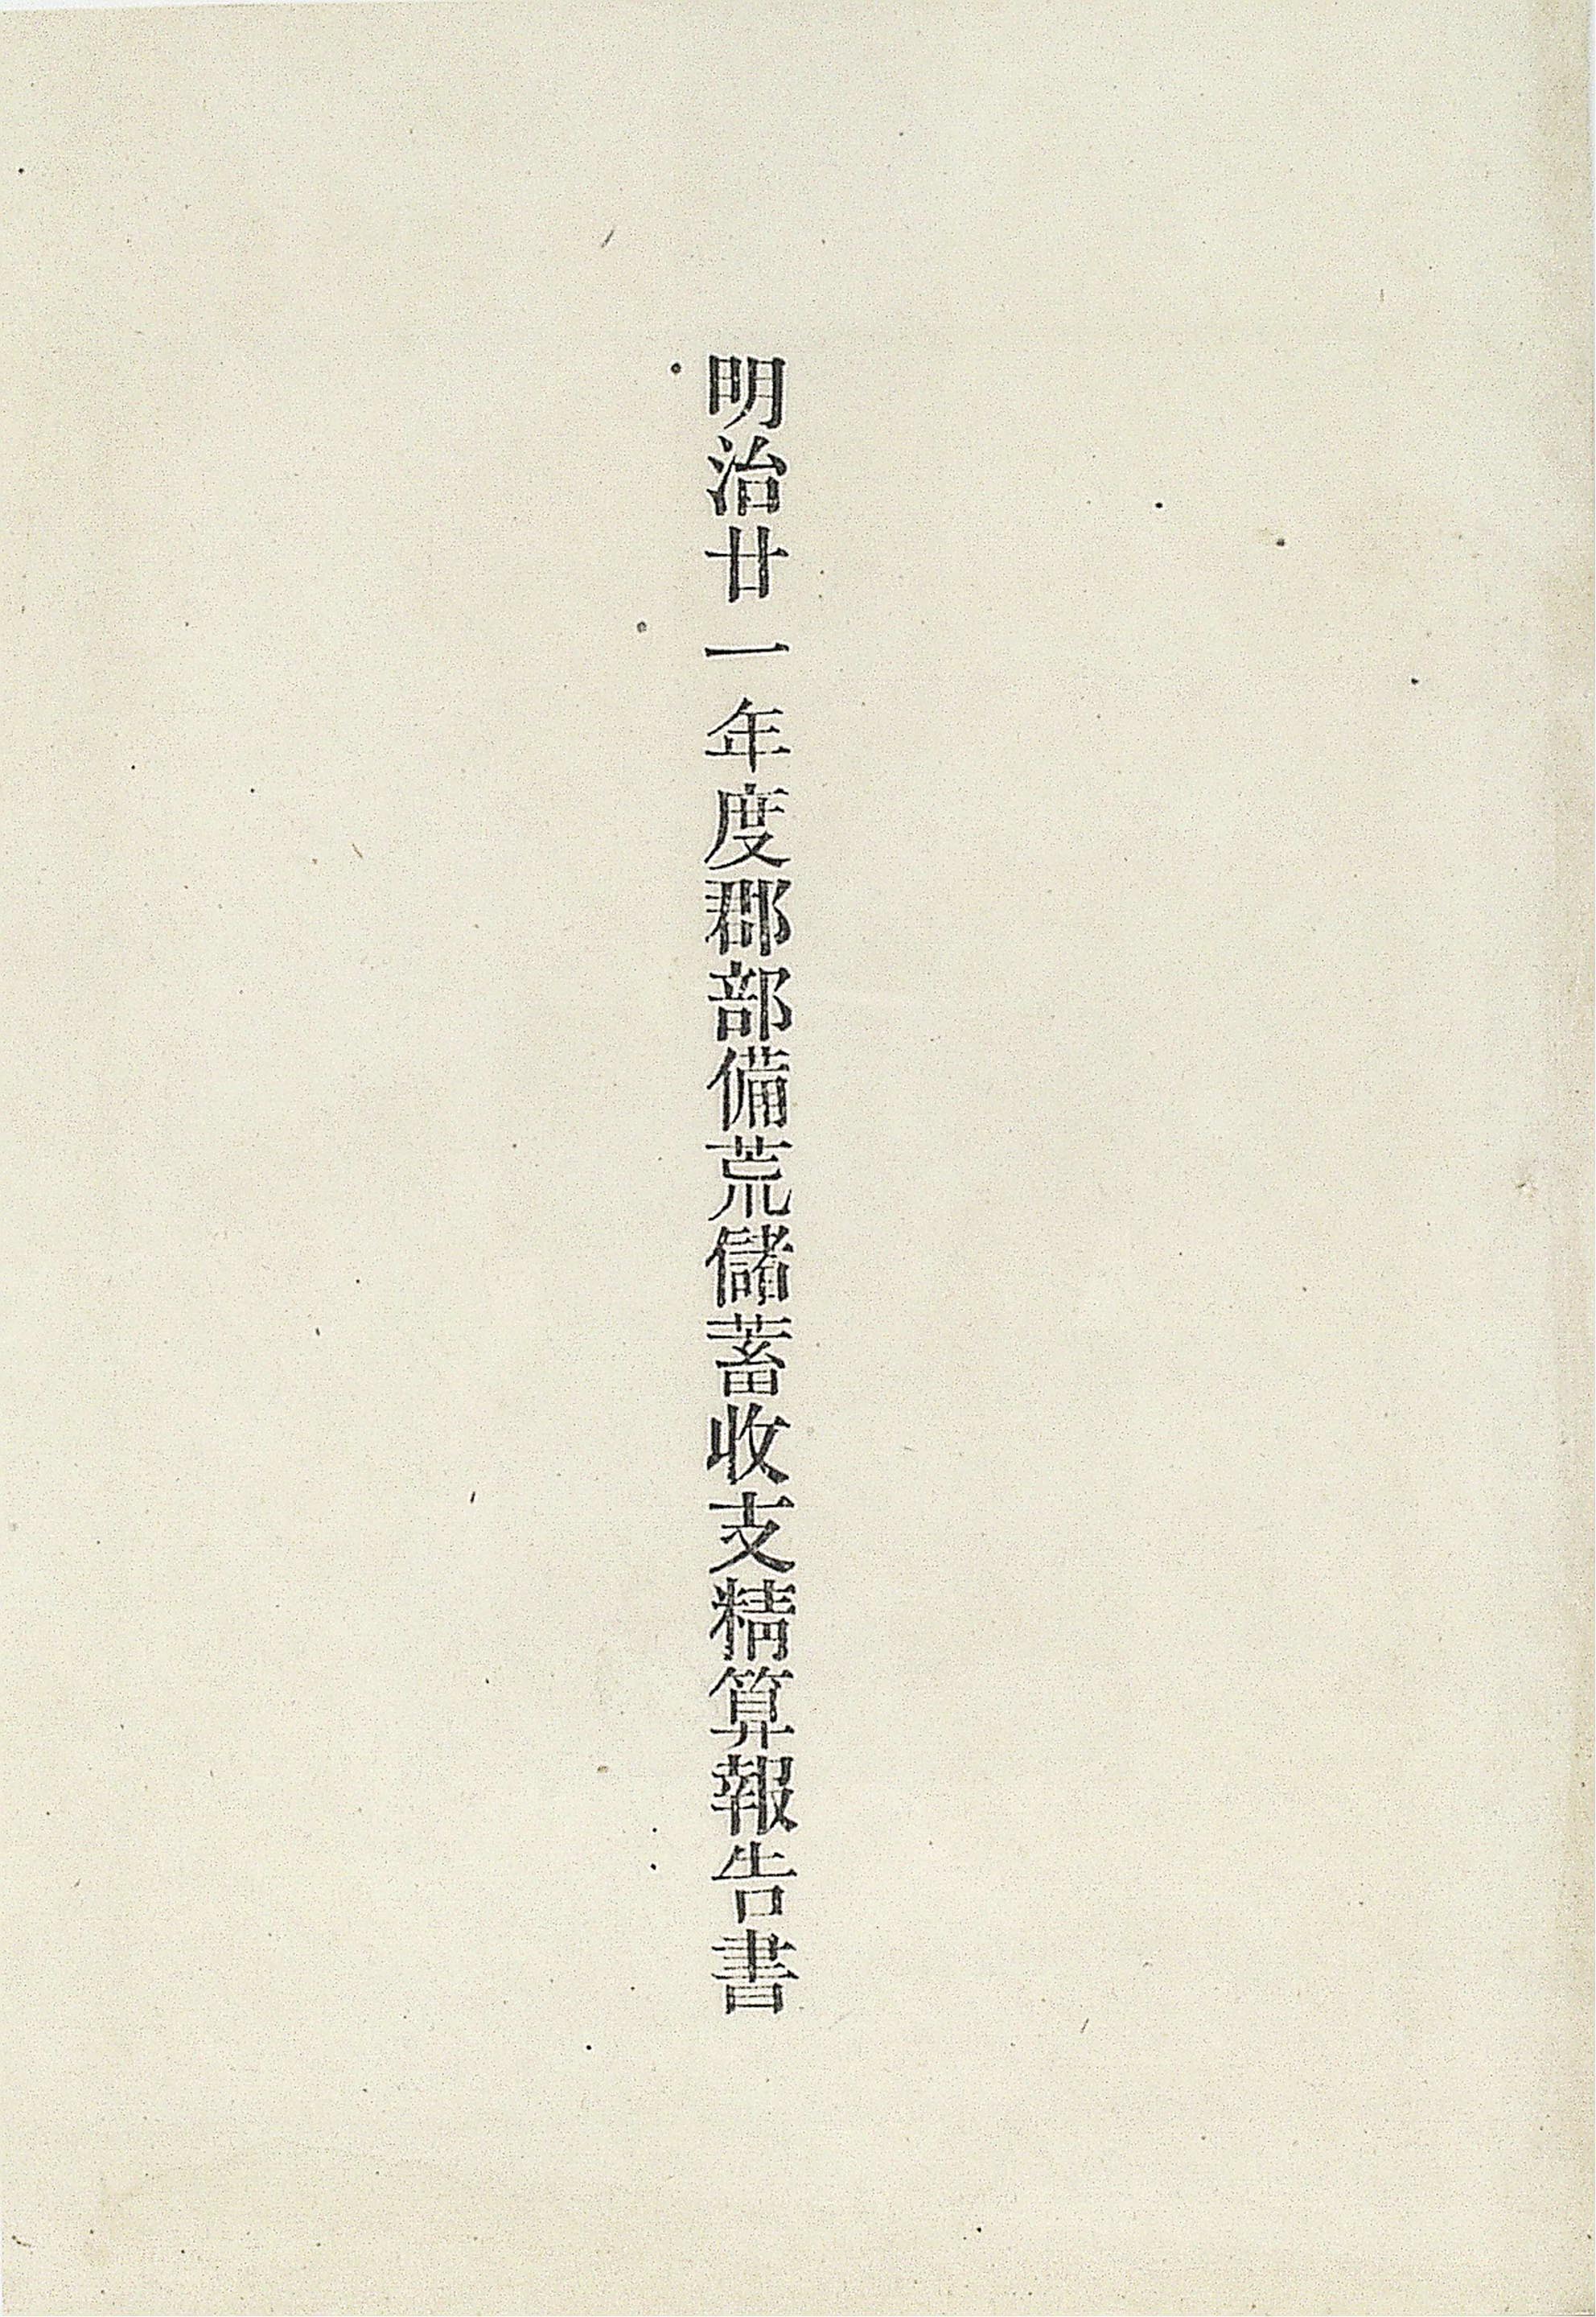 明治廿一年度郡部備荒儲蓄收支精算報告書